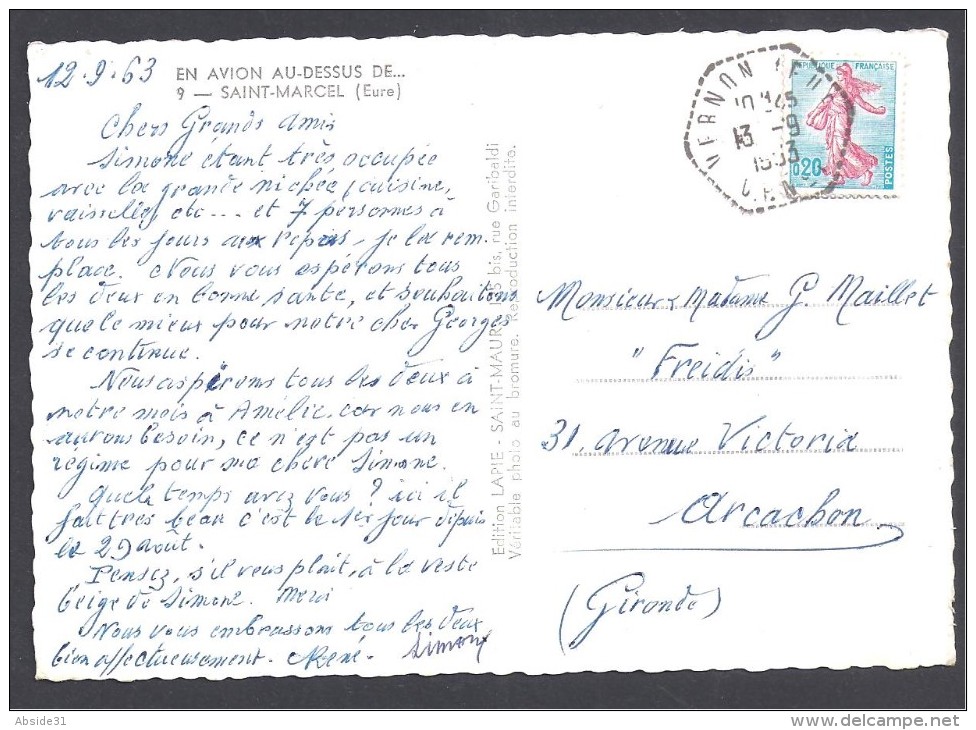 12.9.63
EN AVION AU-DESSUS DE...
9 — SAINT-MARCEL (Eure)
Chers Grands Amis
Simone étant très occupée
avec la grande nichée, cuisine,
vaisselle, etc... et 7 personnes à
tous les jours aux repas, je la rem-
place. Nous vous espérons tous
les deux en bonne santé, et souhaitons
que le mieux pour notre cher Georges
se continue.
Nous aspirons tous les deux à
notre mois à Amélie, car nous en
aurons besoin, ce n'est pas un
régime pour ma chère Simone.
Quel temps avez vous ? ici il
fait très beau c'est le 1er jour depuis
le 29 août.
Pensez, s'il vous plait, à la veste
beige de Simone. Merci
Nous vous embrassons tous les deux
bien affectueusement. René. Simone
Edition LAPIE - SAINT-MAUR bis, rue Garibaldi
Véritable photo au bromure. Reproduction interdite.
VERNON
13 -9
REPUBLIQUE FRANÇAISE
0,20
POSTES
Monsieur & Madame G. Maillet
"Freidis"
31, avenue Victoria
Arcachon
(Gironde)
Abside31
www.delcampe.net